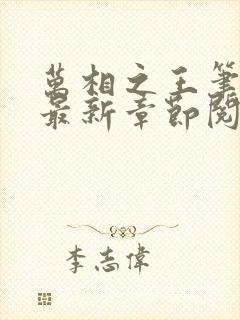 萬相之王筆
最新章節閱
李志偉